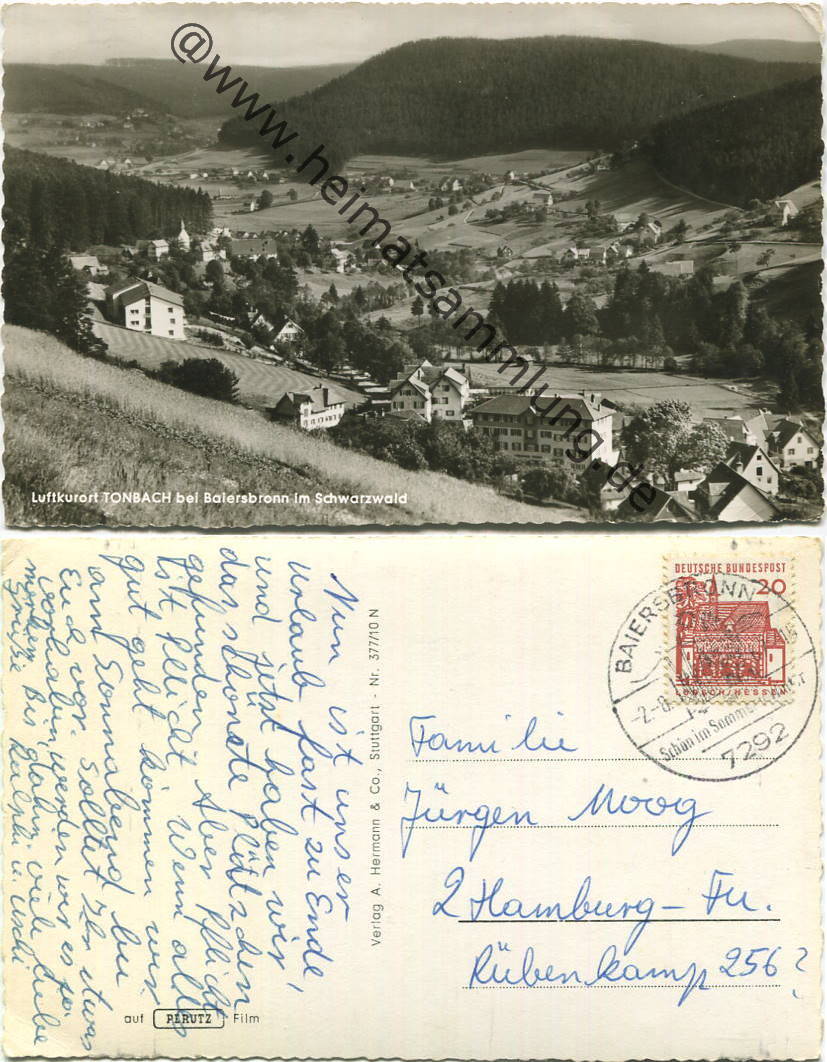 @www.heimatsammlung.de
Luftkurort TONBACH bei Baiersbronn im Schwarzwald
Nun ist unser
Urlaub fast zu Ende,
und jetzt haben wir
das schönste Plätzchen
gefunden. Aber Pflicht
ist Pflicht. Wenn alles
gut geht kommen wir
am Sonnabend bei
Euch vor. Solltet Ihr etwas
vorhaben werden wir es ja
merken. Bis dahin viele liebe
Grüße Ralph u. Uschi
Verlag A. Hermann & Co., Stuttgart - Nr. 377/10 N
auf PERUTZ Film
DEUTSCHE BUNDESPOST
20
LORSCH/HESSEN
BAIERSBRONN
-2.-8.
Schön im Sommer
7292
Familie
Jürgen Moog
2 Hamburg-Fu.
Rübenkamp 256?